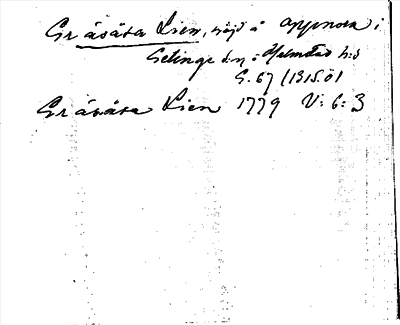 Gråsåsa Lien, höjd å Appnora i
Getinge s:n i Halmstad h:d
S. 67 (1315.01
Gråsåsa Lien 1779 V: 6: 3